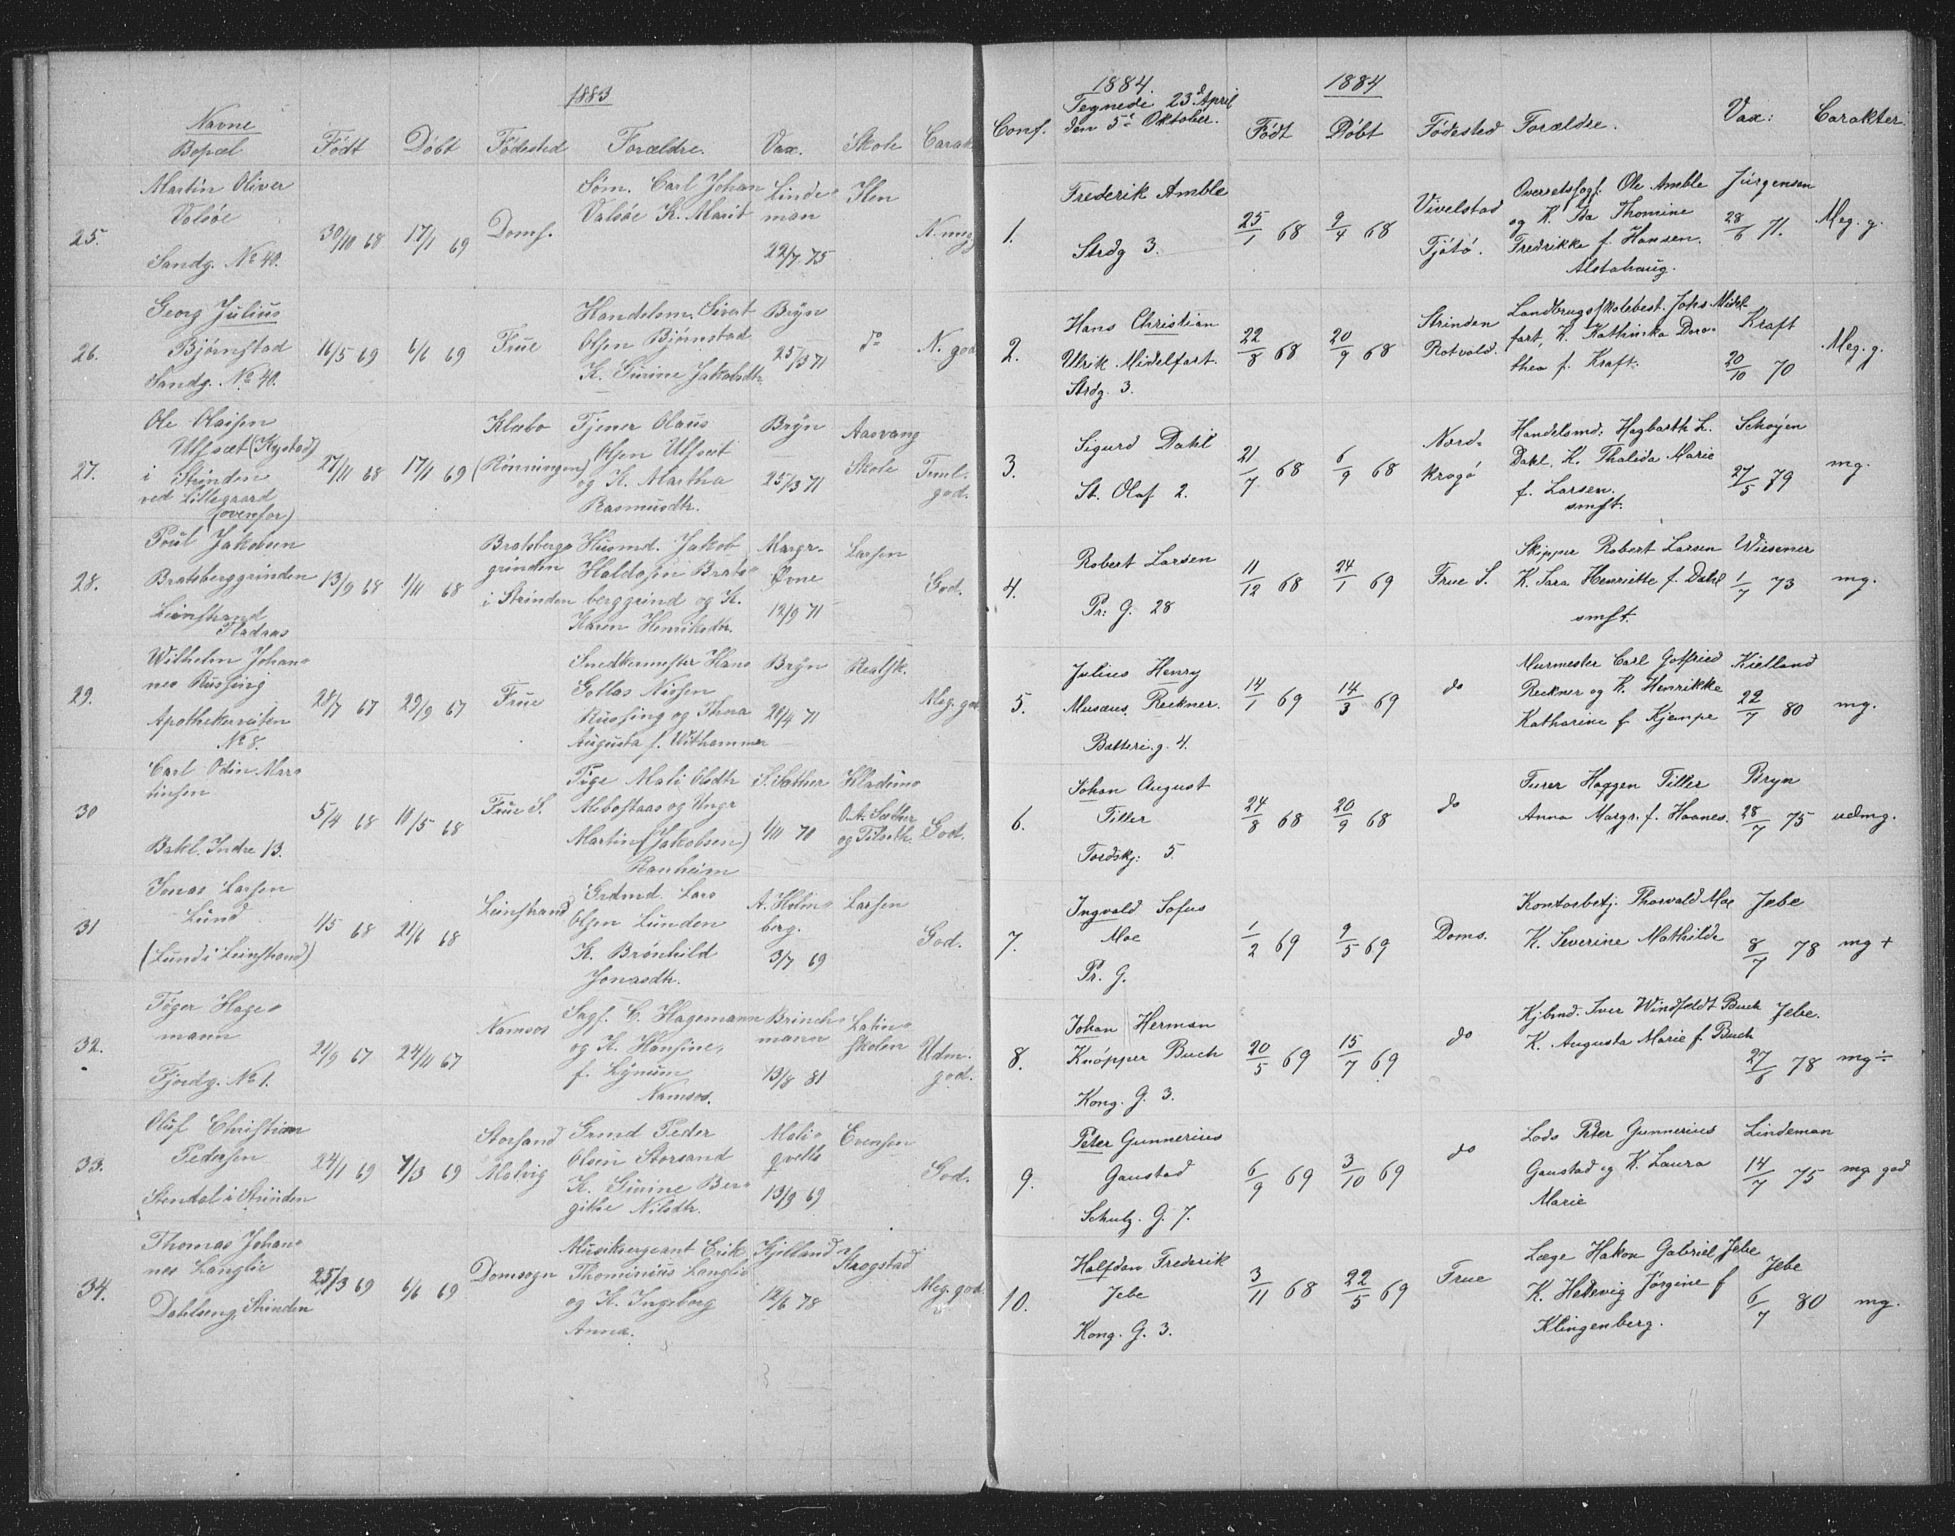 1883
Navne
Bopæl
Født
Døbt
Fødested
Forældre.
Vax.
Skole
Carak
25.
Martin Oliver
Valsøe
Sandg. No 40.
30/10 68
17/1 69
Domf.
Søm. Carl Johan
Valsøe K. Marit
Linde-
man
22/7 75
Ilen
N. meg
26.
Georg Julius
Bjørnstad
Sandg. No 40.
16/5 69
6/6 69
Frue
Handelsm. Sivert
Olsen Bjørnstad
K. Gurine Jakobsdtr.
Bryn
25/3 71
do
N. god
27.
Ole Olaisen
Ulfsæt (Kystad)
i Strinden
ved Lillegaard
(ovenfor)
27/11 68
17/1 69
Klæbo
(Rønningen)
Tjener Olaus
Olsen Ulfsæt
og K. Martha
Rasmusdtr.
Bryn
25/3 71
Aasvang
Skole
Teml.
god.
28.
Poul Jakobsen
Bratsberggrinden
Leinstrand
Fladaas
13/9 68
1/11 68
Bratsberg-
grinden
i Strinden
Husmd. Jakob
Haldosen Brats-
berggrind og K.
Karen Henriksdtr.
Margr.
Øvne
12/9 71
Larsen
God.
29.
Wilhelm Johan-
nes Russing
Apothekerveiten
No 8.
28/7 67
29/9 67
Frue
Snedkermester Hans
Gottas Nissen
Russing og Thea
Augusta f. Withammer
Bryn
20/4 71
Realsk.
Meg. god
30
Carl Odin Mar-
tinsen
Bakl. Indre 13.
5/4 68
10/5 68
Frue S.
Pige Mali Olsdtr
Moboftaas og Ungk
Martin (Jakobsen)
Ranheim
S. Sæther
1/11 70
Hlademo
O. A. Sæther
og Tilseth.
God.
31
Jonas Larsen
Lund
(Lund i Leinstrand)
1/5 68
21/6 68
Leinstrand
Grdmd. Lars
Olsen Lunden
K. Brønhild
Jonasdtr.
A. Holm-
berg.
3/7 69
Larsen
God.
32.
Tøger Hage-
mann
Fjordg. No 1.
21/9 67
24/11 67
Namsos
Sagf. C. Hagemann
og K. Hansine,
f. Lynum
Namsos.
Brinch-
mann
13/8 81
Latin-
skolen
Udm.
god.
33.
Oluf Christian
Pedersen
Stendal i Strinden
24/1 69
7/3 69
Storsand
Malvig
Grmd Peder
Olsen Storsand
K. Gurine Ber-
gitte Nilsdtr.
Mali-
qvells
13/9 69
Evensen
God.
34.
Thomas Johan-
nes Langlie
Dahlseng, Strinden
25/3 69
6/6 69
Domsogn
Musiksergeant Erik
Thominius Langlie
og K. Ingeborg
Anna.
Kjelland
12/6 78
Krogstad
Meg. god.
1884.
Tegnede 23d April
den 5te Oktober.
1884
Conf.
Født
Døbt
Fødested
Forældre.
Vax:
Carakter
1.
Frederik Amble
Strdg 3.
25/1 68
9/4 68
Vivelstad
Tjøtø.
Overretssagf. Ole Amble
og K. Ida Thomine
Fredrikke f. Hansen.
Alstahaug.
Jürgensen
28/6 71.
Meg. g.
2.
Hans Christian
Ulrik Midelfart.
Strdg. 3.
22/8 68
20/9 68
Strinden
Rotvold.
Landbrugsskolebest. Johs Midel-
fart, K. Kathinka Doro-
thea f. Kraft.
Kraft
20/10 70
Meg. g.
3.
Sigurd Dahl
St. Olaf 2.
21/7 68
6/9 68
Nord-
krogø
Handelsmd: Hagbarth L.
Dahl, K. Thalida Marie
f. Larsen.
smst.
Schøyen
27/5 79
mg.
4.
Robert Larsen
Pr: G. 28
11/12 68
24/1 69
Frue S.
Skipper Robert Larsen
K. Sara Henriette f. Dahl
smst.
Wiesener
1/7 73
mg.
5.
Julius Henry
Musæus Reckner.
Batteri. g. 4.
14/1 69
14/3 69
do
Murmester Carl Gotfried
Reckner og K. Henrikke
Katharine f. Kjempe
Kielland
22/7 80
mg.
6.
Johan August
Tiller
Tordskj: 5.
24/8 68
20/9 68
do
Furer Haggen Tiller
Anna Margr. f. Haanes.
Bryn
28/7 75
udmg.
7.
Ingvald Sofus
Moe
Pr. G.
1/2 69
9/5 69
Doms.
Kontorbetj. Thorvald Moe
K. Severine Mathilde
Jebe
8/7 78
mg +
8.
Johan Herman
Knøpper Buch
Kong. G. 3.
20/5 69
15/7 69
do
Kjbmd. Iver Windfeldt Buch
K. Augusta Marie f. Buch
Jebe.
27/6 78
mg ÷
9.
Peter Gunnerius
Gaustad
Schulz. G. 7.
6/9 69
3/10 69
do
Lods Peter Gunnerius
Gaustad og K. Laura
Marie
Lindeman
14/7 75
mg god
10.
Halfdan Frederik
Jebe
Kong. G. 3.
3/11 68
22/5 69
Frue
Læge Hakon Gabriel Jebe
K. Hedevig Jørgine f
Klingenberg.
Jebe
6/7 80
mg.